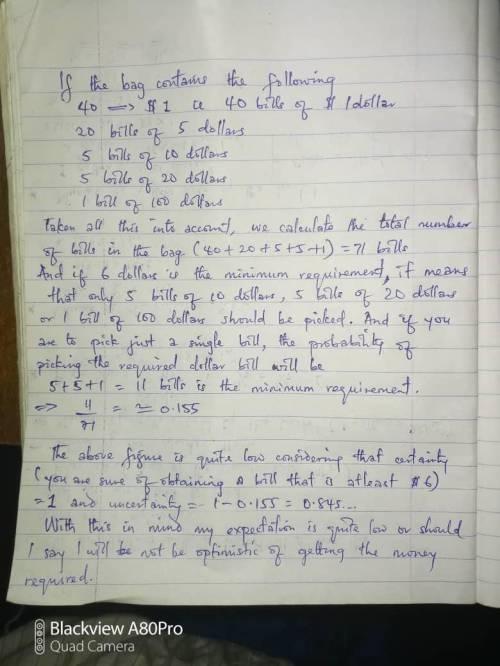 If the bag contains the following
40 => $1 ie 40 bills of $1dollar
20 bills of 5 dollars
5 bills of 10 dollars
5 bills of 20 dollars
1 bill of 100 dollars
Taken all this into account, we calculate the total number
of bills in the bag (40+20+5+5+1) = 71 bills
And if 6 dollars is the minimum requirement, it means
that only 5 bills of 10 dollars, 5 bills of 20 dollars
or 1 bill of 100 dollars should be picked. And if you
are to pick just a single bill, the probability of
picking the required dollar bill will be
5+5+1 = 11 bills is the minimum requirement.
=> 11/71 = ≈ 0.155
The above figure is quite low considering that certainty
(you are sure of obtaining a bill that is atleast $6)
= 1 and uncertainty = 1-0.155 = 0.845...
With this in mind my expectation is quite low or should
I say I will be not be optimistic of getting the money
required.
Blackview A80Pro
Quad Camera